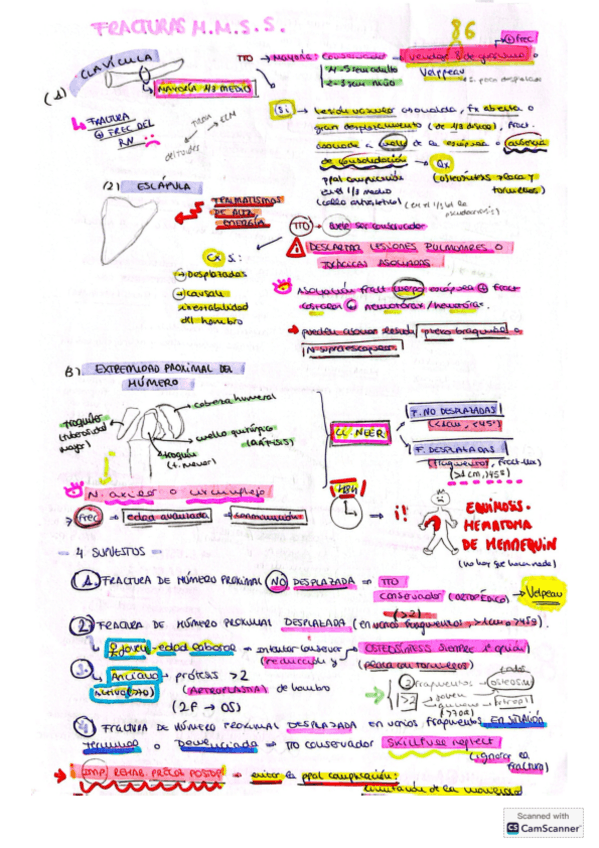 FRACTURAS M.M.S.S.
86
① frec
(1) CLAVÍCULA
MAYORÍA 1/3 MEDIO
TTO → Mayoría: Conservador → Vendaje 8 de guarismo o
Velpeau
FRACTURA
FREC DEL
RN
Si
Lesión vascular asociada, fx abierta o
gran desplazamiento (de 1/3 distal), fract.
asociada a cuello de la escápula o ausencia
de consolidación → Qx
ppal complicación (osteosíntesis placa y
en el 1/3 medio tornillos)
(callo antiestético)
(2) ESCÁPULA
TRAUMATISMOS
DE ALTA
ENERGÍA
TTO → Suele ser conservador
DESCARTAR LESIONES PULMONARES O
TORÁCICAS ASOCIADAS
Cx Si:
→ Desplazadas
→ Causan
inestabilidad
del hombro
Asociación fract cuerpo escápula ⊕ fract
costales neumotórax/hemotórax.
→ pueden asociar lesión plexo braquial o
N. supraescapular
3) EXTREMIDAD PROXIMAL DEL
HÚMERO
cabeza humeral
troquíter
(tuberosidad
mayor)
cuello quirúrgico
troquín
(t. menor)
CL. NEER
F. NO DESPLAZADAS
(<1cm, <45º)
F. DESPLAZADAS
(>1cm, >45º)
N. axilar o circunflejo
Frec → edad avanzada → conminución
48H
→ ¡!
EQUIMOSIS-
HEMATOMA
DE HENNEQUIN
(no hay que hacer nada)
= 4 SUPUESTOS =
1. FRACTURA DE HÚMERO PROXIMAL NO DESPLAZADA → TTO
conservador (ORTOPÉDICO) → Velpeau
(>2)
2. FRACTURA DE HÚMERO PROXIMAL DESPLAZADA (en varios fragmentos, >1cm, >45º).
joven, edad laboral → intentar conservar OSTEOSÍNTESIS siempre
(reducción y (placa con tornillos)
3. Anciano → prótesis >2
activo (>70) (ARTROPLASTIA) de hombro
(2F → OS)
2 fragmentos → osteosín
>2
joven
(>70a)
4. FRACTURA DE HÚMERO PROXIMAL DESPLAZADA en varios fragmentos EN SITUACIÓN
Terminal o Demenciada → TTO conservador Skillfull neglect
(ignorar la
fractura)
→ IMP REHAB. PRECOZ POSTOP → evitar la ppal complicación:
limitación de la movilidad
Scanned with
CS CamScanner